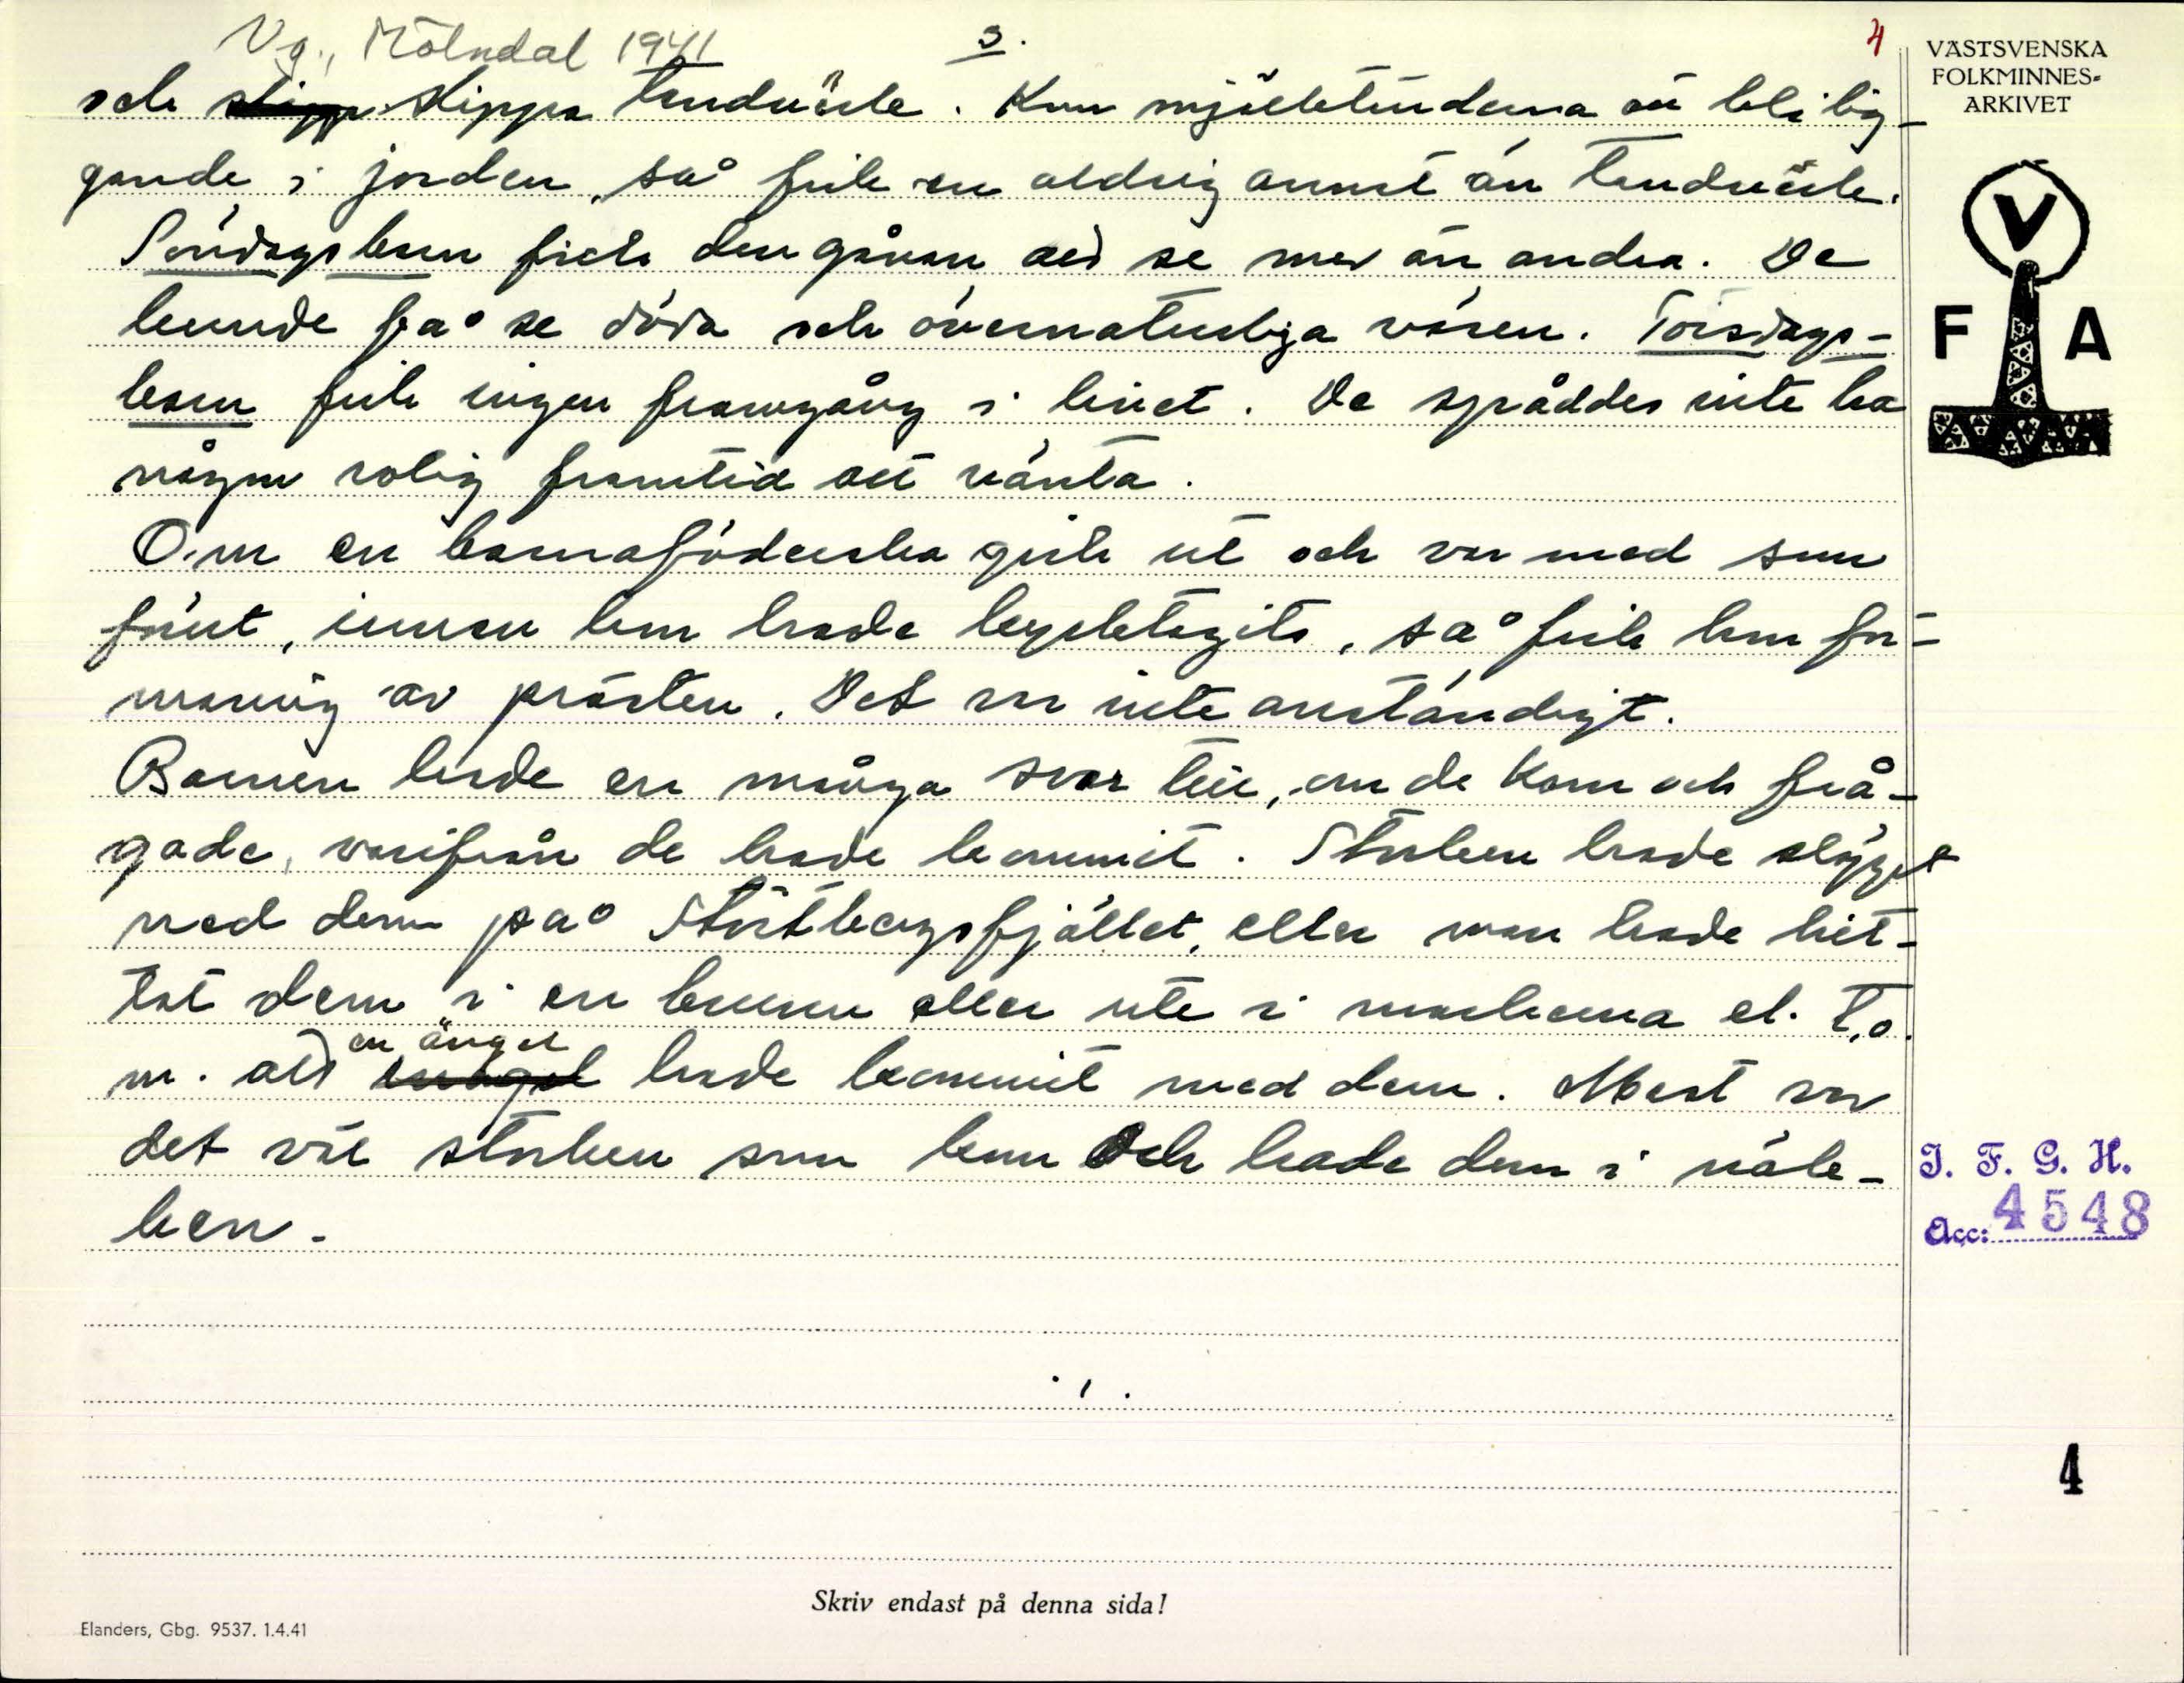 Vg., Mölndal 1941
3.
4
och slippa tandvärk. Kom mjölktänderna att bli lig-
gande i jorden, så fick en aldrig annat än tandvärk.
Söndagsbarn fick den gåvan att se mer än andra. De
kunde få se döda och övernaturliga väsen. Torsdags-
barn fick ingen framgång i livet. De spåddes inte ha
någon rolig framtid att vänta.
Om en barnaföderska gick ut och var med som
förut, innan hon hade kyrktagits, så fick hon för-
maning av prästen. Det var inte anständigt.
Barnen hade en många svar till, om de kom och frå-
gade, varifrån de hade kommit. Storken hade släppt
ned dem på Störtbergsfjället, eller man hade hit-
tat dem i en brunn eller ute i markerna el. t.o.
m. att en ängel hade kommit med dem. Mest var
det väl storken som kom och hade dem i näb-
ben.
VÄSTSVENSKA
FOLKMINNES=
ARKIVET
V
F A
I. F. G. H.
Acc: 4548
4
Skriv endast på denna sida!
Elanders, Gbg. 9537. 1.4.41